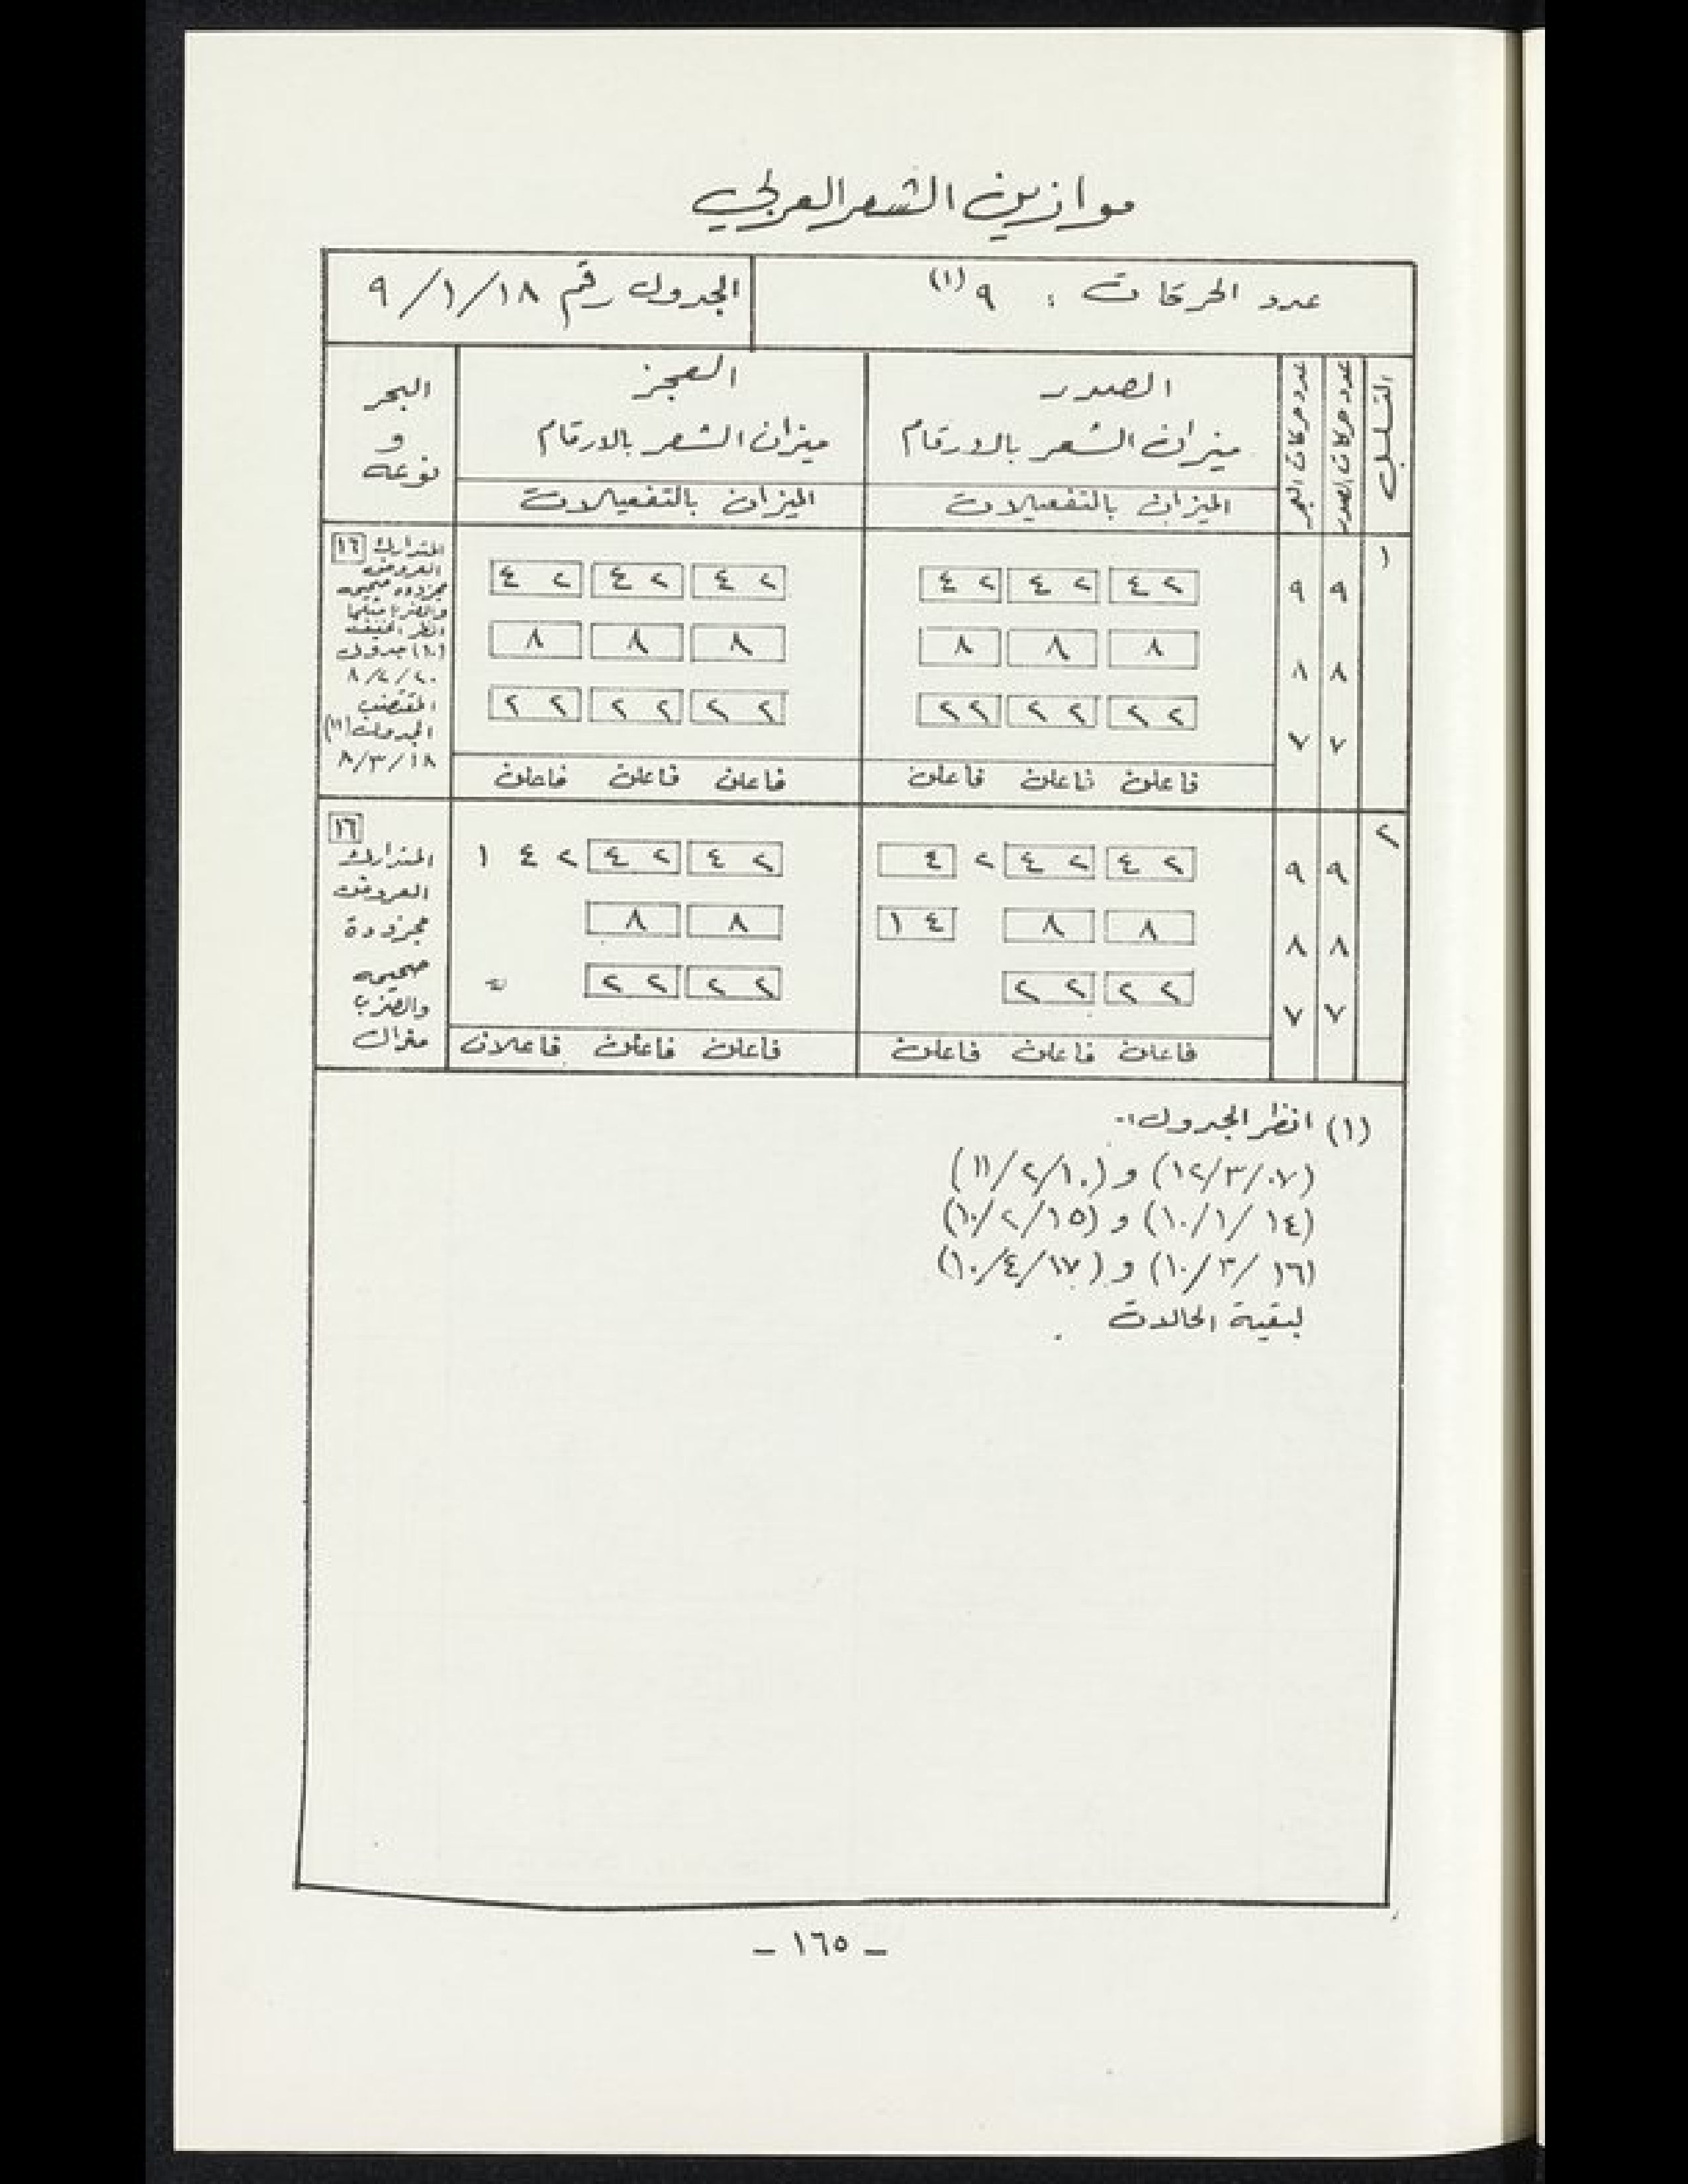 موازين الشعر العربي
عدد الحركات : ٩ (١)
الجدول رقم ١٨/١/٩
التسلسل
عدد حركات الصدر
عدد حركات العجز
الصدر
ميزان الشعر بالارقام
الميزان بالتفعيلات
العجز
ميزان الشعر بالارقام
الميزان بالتفعيلات
البحر
و
نوعه
١
٩ ٩
٨ ٨
٧ ٧
٢ ٤ ٢ ٤ ٢ ٤
٨ ٨ ٨
٢ ٢ ٢ ٢ ٢ ٢
فاعلن فاعلن فاعلن
٢ ٤ ٢ ٤ ٢ ٤
٨ ٨ ٨
٢ ٢ ٢ ٢ ٢ ٢
فاعلن فاعلن فاعلن
المتدارك ١٦
العروض
مجزوءه صحيحه
والضرب مثلها
انظر الخفيف
(١٠) جدول
٢٠/٤/٨
المقتضب
الجدول (١١)
١٨/٣/٨
٢
٩ ٩
٨ ٨
٧ ٧
٢ ٤ ٢ ٤ ٢ ٤
٨ ٨ ٤ ١
٢ ٢ ٢ ٢
فاعلن فاعلن فاعلن
٢ ٤ ٢ ٤ ٢ ٤ ١
٨ ٨
٢ ٢ ٢ ٢
فاعلن فاعلن فاعلان
١٦
المتدارك
العروض
مجزوءة
صحيحه
والضرب
مذال
(١) انظر الجدول :-
(٠٧/٣/١٢) و (١٠/٢/١١)
(١٤/١/١٠) و (١٥/٢/١٠)
(١٦/٣/١٠) و (١٧/٤/١٠)
لبقية الحالات .
– ١٦٥ –